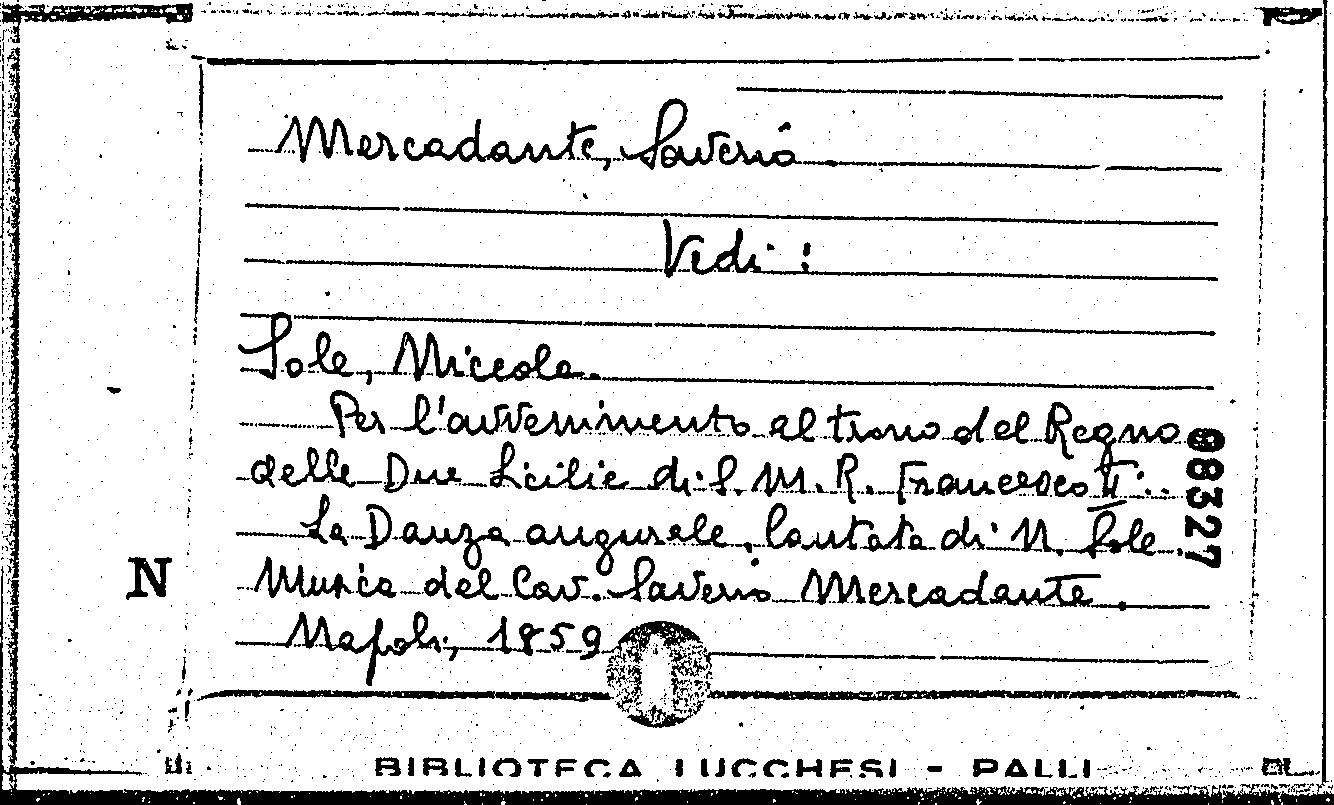 Mercadante, Saverio
Vedi :
Sole, Niccola.
Per l'avvenimento al trono del Regno
delle Due Sicilie di S. M. R. Francesco II :.
La Danza augurale, Cantata di N. Sole
Musica del Cav. Saverio Mercadante.
Napoli, 1859
083327
N
BIBLIOTECA LUCCHESI - PALLI